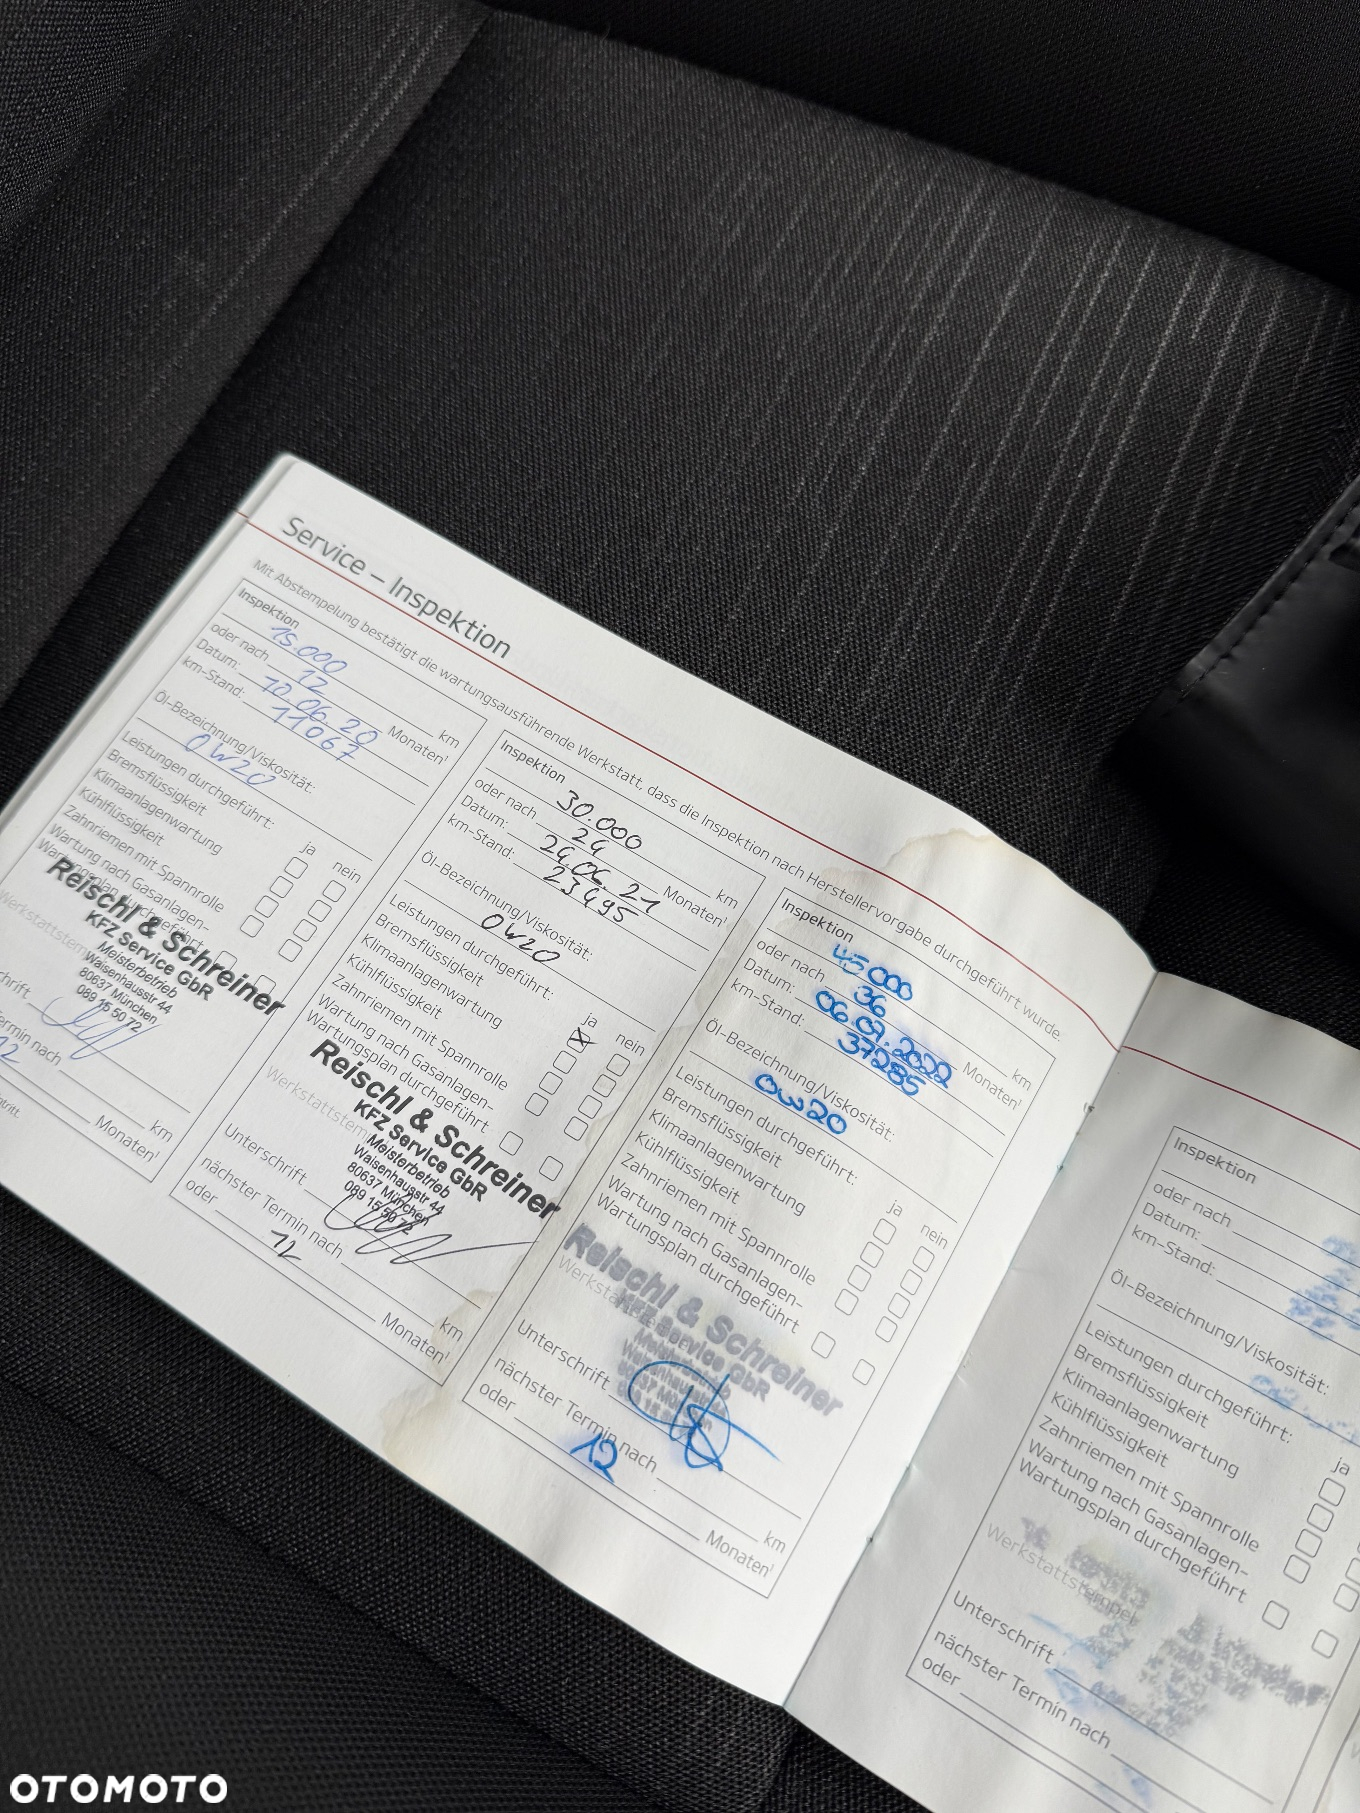 Service – Inspektion
Mit Abstempelung bestätigt die wartungsausführende Werkstatt, dass die Inspektion nach Herstellervorgabe durchgeführt wurde.
Inspektion
15.000 km
oder nach 12 Monaten¹
Datum: 10.06.20
km-Stand: 11067
Öl-Bezeichnung/Viskosität:
0W20
Leistungen durchgeführt: ja nein
Bremsflüssigkeit
Klimaanlagenwartung
Kühlflüssigkeit
Zahnriemen mit Spannrolle
Wartung nach Gasanlagen-
Wartungsplan durchgeführt
Reischl & Schreiner
KFZ Service GbR
Meisterbetrieb
Waisenhausstr 44
80637 München
089 15 50 72
nach km
12 Monaten¹
Inspektion
30.000 km
oder nach 24 Monaten¹
Datum: 24.06.21
km-Stand: 23495
Öl-Bezeichnung/Viskosität:
0W20
Leistungen durchgeführt: ja nein
Bremsflüssigkeit X
Klimaanlagenwartung
Kühlflüssigkeit
Zahnriemen mit Spannrolle
Wartung nach Gasanlagen-
Wartungsplan durchgeführt
Reischl & Schreiner
KFZ Service GbR
Meisterbetrieb
Waisenhausstr 44
80637 München
089 15 50 72
Unterschrift
nächster Termin nach km
oder 12 Monaten¹
Inspektion
45000 km
oder nach 36 Monaten¹
Datum: 06.07.2022
km-Stand: 37285
Öl-Bezeichnung/Viskosität:
0W20
Leistungen durchgeführt: ja nein
Bremsflüssigkeit
Klimaanlagenwartung
Kühlflüssigkeit
Zahnriemen mit Spannrolle
Wartung nach Gasanlagen-
Wartungsplan durchgeführt
Reischl & Schreiner
KFZ Service GbR
Unterschrift
nächster Termin nach km
oder 12 Monaten¹
Inspektion
oder nach
Datum:
km-Stand:
Öl-Bezeichnung/Viskosität:
Leistungen durchgeführt: ja
Bremsflüssigkeit
Klimaanlagenwartung
Kühlflüssigkeit
Zahnriemen mit Spannrolle
Wartung nach Gasanlagen-
Wartungsplan durchgeführt
Werkstattstempel
Unterschrift
nächster Termin nach
oder
OTOMOTO